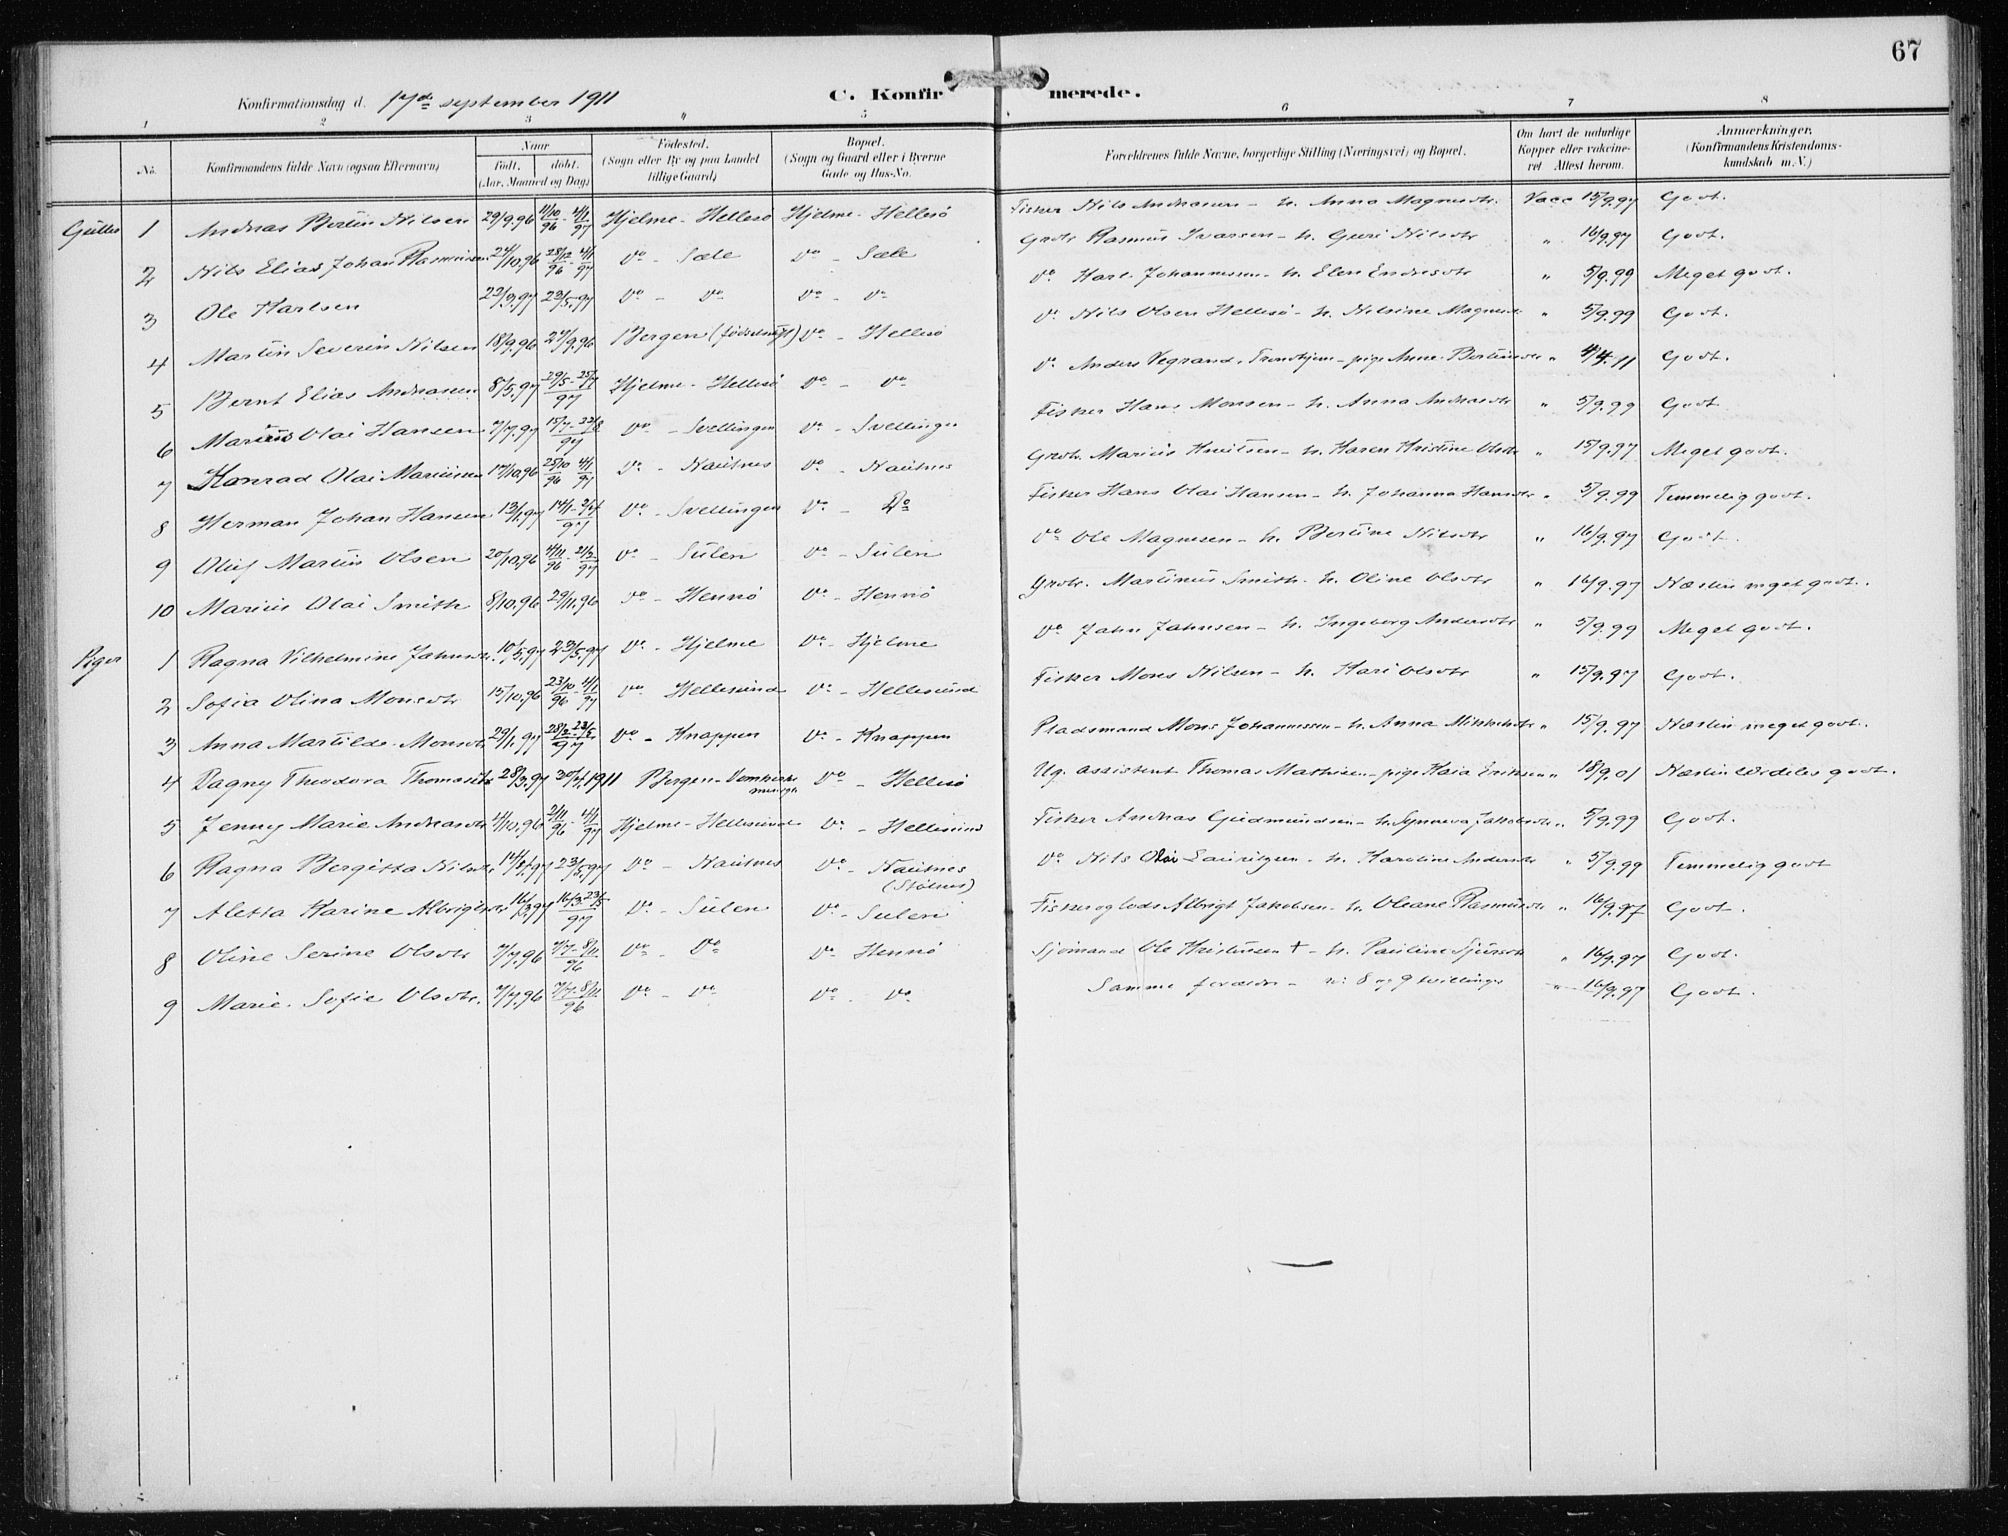 67
Konfirmationsdag d. 17de september 1911
C. Konfirmerede.
1 2 3 4 5 6 7 8
No. Konfirmandens fulde Navn (ogsaa Efternavn) Naar født, døbt. (Aar, Maaned og Dag) Fødested. (Sogn eller By og paa Landet tillige Gaard) Bopæl. (Sogn og Gaard eller i Byerne Gade og Hus-No. Forældrenes fulde Navne, borgerlige Stilling (Næringsvei) og Bopæl. Om havt de naturlige Kopper eller vakcineret Allest herom. Anmærkninger. (Konfirmandens Kristendomskundskab m. V.)
Gutter 1 Andreas Bertin Nilsen 29/9.96 11/10 96 - 4/1 97 Hjelme - Hellesö Hjelme - Hellesö Fisker Nils Andreasen - h. Anna Magnesdtr. Vacc 15/9.97 Godt.
2 Nils Elias Johan Rasmussen 24/10.96 28/12 96 - 4/1 97 do - Sæle do - Sæle Grdbr. Rasmus Ivarsen - h. Guri Nilsdtr " 16/9.97 Godt.
3 Ole Karlsen 23/3.97 23/5.97 do - do do - do do Karl Johannessen - h. Elen Endresdtr " 5/9.99 Meget godt.
4 Martin Severin Nilsen 18/9.96 27/9.96 Bergen do - Hellesö do Nils Olsen Hellesö - h. Nilsine Magnesd. " 5/9.99 Godt.
5 Bernt Elias Andreasen 8/5.97 29/5 - 25/7 97 Hjelme - Hellesö do - do do Anders Vegrand, Trondhjem - pige Anne Bertinsdtr " 4/4.11 Godt.
6 Marius Olai Hansen 7/7.97 15/7 - 22/8 97 do - Svellingen do - Svellingen Fisker Hans Monsen - h. Anna Andreasdtr " 5/9.99 Godt
7 Konrad Olai Mariussen 17/10.96 25/10 96 - 4/1 97 do - Nautnes do - Nautnes Grdbr. Marius Knutsen - h. Karen Kristine Olsdtr " 15/9.97 Meget godt.
8 Herman Johan Hansen 13/1.97 do - Svellingen do - Do Fisker Hans Olai Hansen - h. Johanna Hansdtr " 5/9.99 Temmelig godt.
9 Oluf Martin Olsen 20/10.96 do - Sulen do - Sulen do Ole Magnesen - h. Bertine Nilsdtr " 16/9.97 Godt.
10 Marius Olai Smith 8/10.96 29/11.96 do - Hennö do - Hennö Grdbr. Martinus Smith - h. Oline Olsdtr " 16/9.97 Næsten meget godt.
Piger 1 Ragna Vilhelmine Jahnsdtr. 10/5.97 23/5.97 do - Hjelme do - Hjelme do Jahn Jahnsen - h. Ingeborg Andersdtr " 5/9.99 Meget godt.
2 Sofia Olina Monsdtr 15/10.96 23/10 96 - 4/1 97 do Hellesund do - Hellesund Fisker Mons Nilsen - h. Kari Olsdtr " 15/9.97 Godt.
3 Anna Martilde Monsdtr 29/1.97 28/2 - 23/5 97 do - Knappen do - Knappen Pladsmand Mons Johannessen - h. Anna Mikkelsdtr " 15/9.97 Næsten meget godt.
4 Dagny Theodora Thomasdtr 28/3.97 1911 Bergen - Domkirke menigh. do - Hellesö Ug. assistent Thomas Mathisen - pige Kaia Eriksen " 18/9.01 Næsten særdeles godt.
5 Jenny Marie Andreasdtr 4/10.96 2/11 96 - 4/1 97 Hjelme - Hellesund do - Hellesund Fisker Andreas Gudmundsen - h. Synneva Jakobsdtr " 5/9.99 Godt.
6 Ragna Bergitta Nilsdtr 23/5.97 do - Nautnes do - Nautnes (Stölnes) do Nils Olai Lauritzen - h. Karoline Andersdtr " 5/9.99 Temmelig godt
7 Aletta Karine Albrigtsdtr 16/3.97 16/3 - 23/5 97 do - Sulen do - Sulen Fisker og lods Albrigt Jakobsen - h. Oleane Rasmusdtr " 16/9.97 Godt.
8 Oline Serine Olsdtr 7/7.96 7/7 - 8/11 96 do - do do Hennö Sjömand Ole Kristensen † - h. Pauline Sjursdtr " 16/9.97 Godt.
9 Marie Sofie Olsdtr. 7/7.96 7/7 - 8/11 96 do - do do - do Samme forældre - nr. 8 og 9 tvillinger " 16/9.97 Godt.